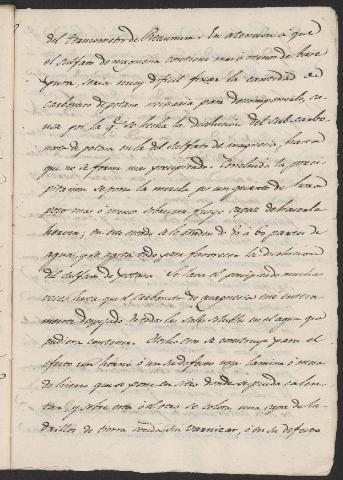 del Termómetro de Reaumur. En atencion á que
el sulfato de magnesia contiene mas ó menos de base
pura, seria muy dificil fixar la cantidad de
carbonato de potasa necesaria para descomponerlo, ca-
usa por la q.e se hecha la disolucion del sub-carbo-
nato de potasa en la del sulfato de magnesia, hasta
que no se forme mas precipitado. Concluida la preci-
pitacion se pone la mezcla por un quarto de hora
poco mas ó menos sobre un fuego capaz de hacerla
hervir; en este estado se le añaden de 50 á 60 partes de
agua, y se agita todo para favorecer la disolucion
del sulfato de potasa. Se lava el precipitado muchas
veces hasta que el carbonato de magnesia esté entera-
mente despojado de todas las sales solubles en el agua que
pudiera contener. Hecho esto se construye para el
efecto un horno ó en su defecto una lamina ó mesa
de hierro que se pone en sitio donde se pueda calen-
tar, y sobre esta ó el otro se coloca una capa de la-
drillos de tierra cocida sin varnizar, ó en su defecto